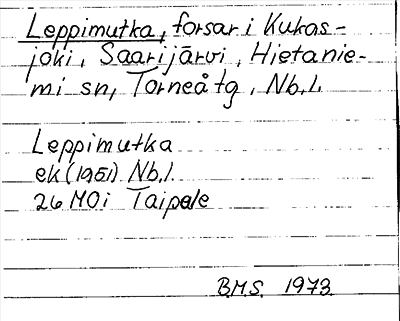 Leppimutka, forsar i Kukas-
joki, Saarijärvi, Hietanie-
mi sn, Torneå tg, Nb.l.
Leppimutka
ek (1951) Nb.l.
26 M0i Taipale
B.M.S. 1973